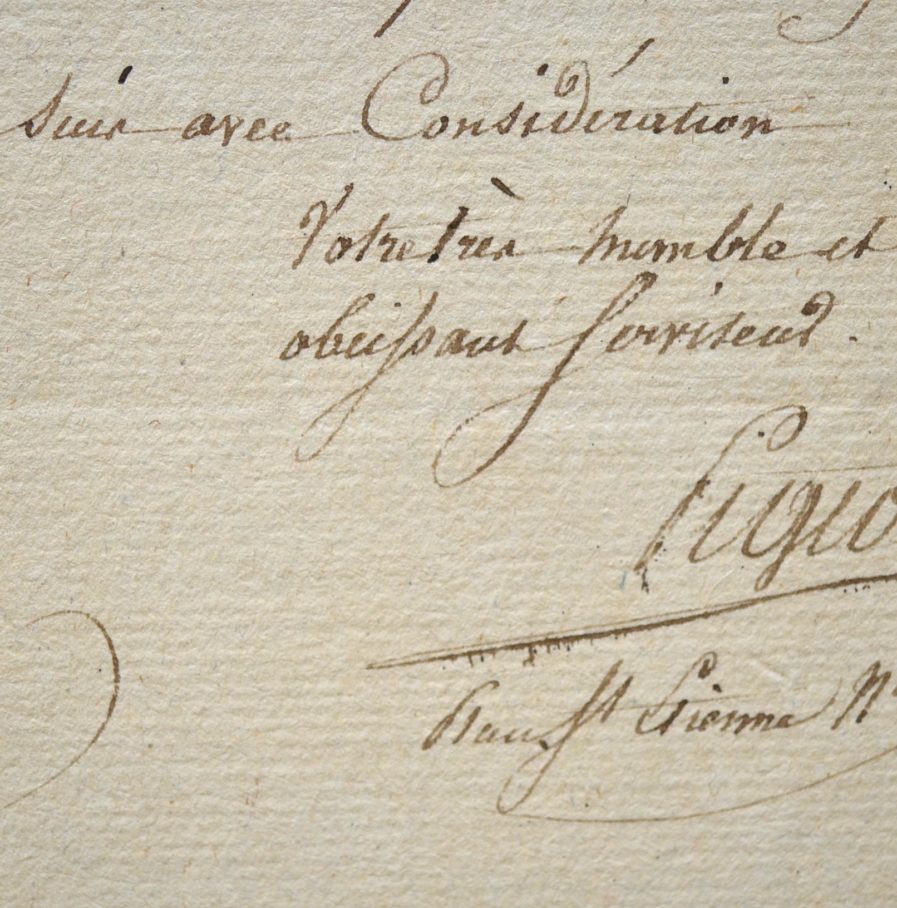 suis avec Considération
Votre très humble et
obeissant Serviteur.
St Etienne N